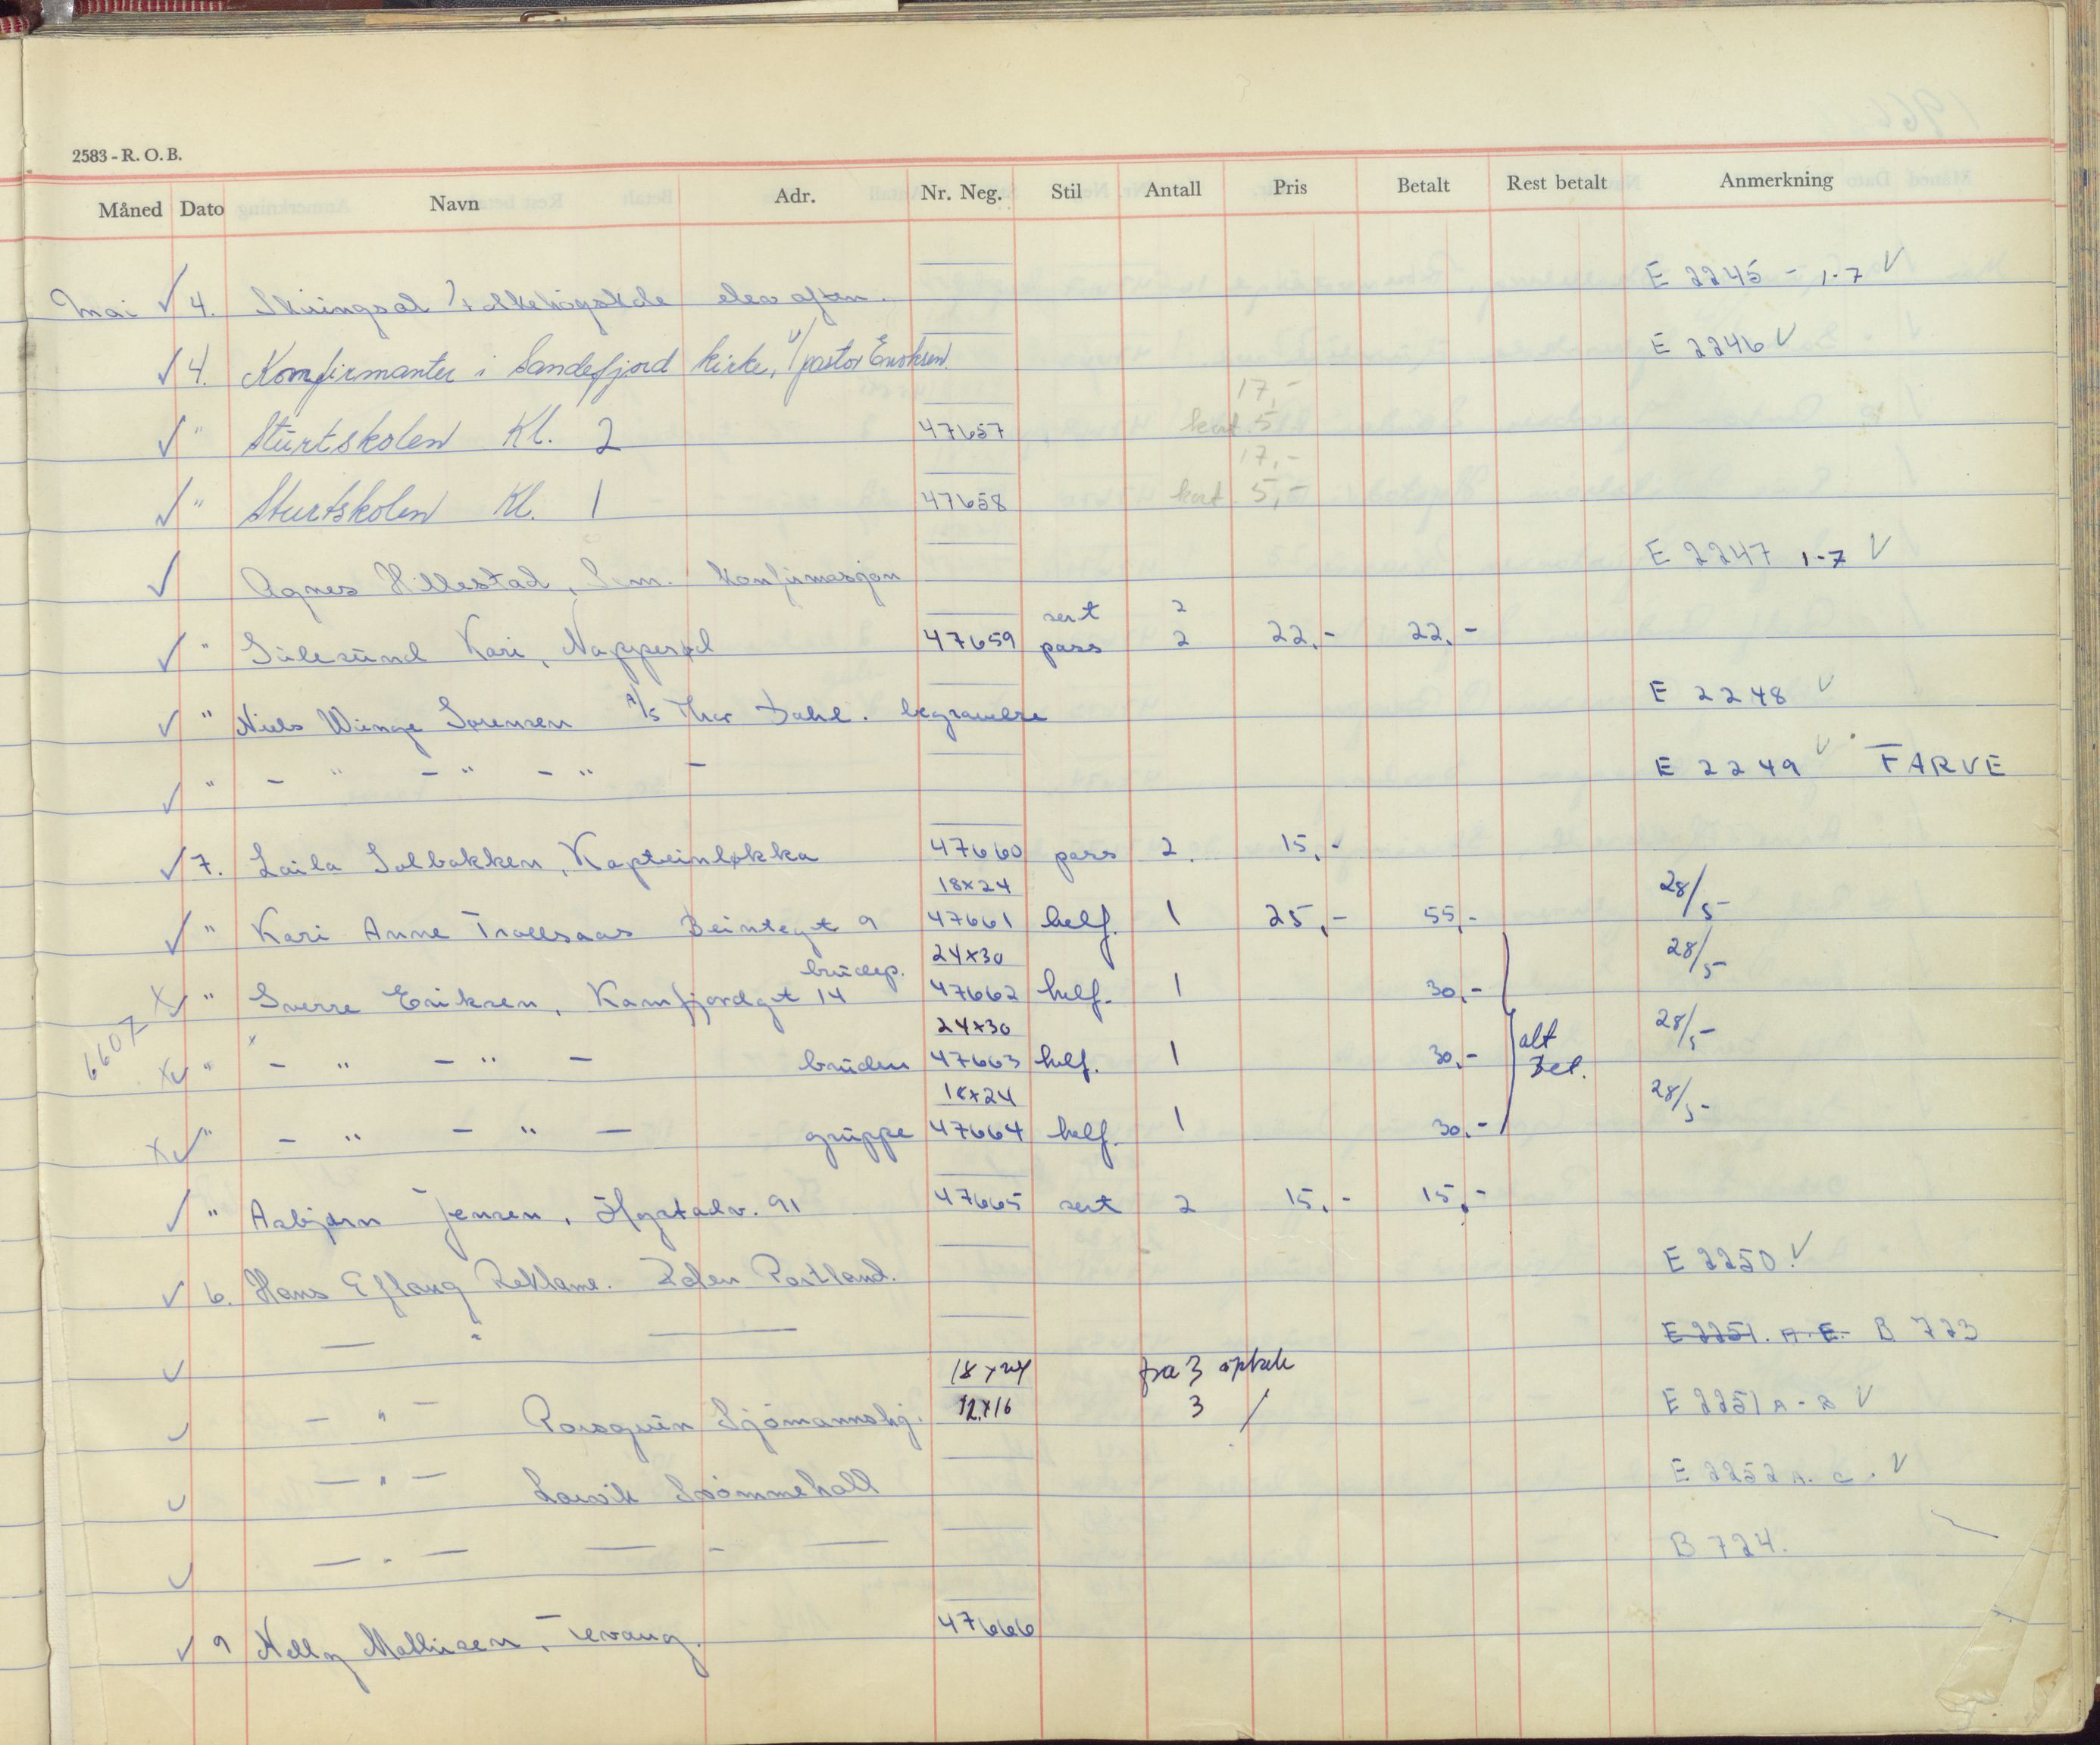 2583 - R. O. B.
Måned Dato Navn Adr. Nr. Neg. Stil Antall Pris Betalt Rest betalt Anmerkning
Mai √ 4. Skiringsal Folkehögskole elev aften. E 2245 - 1-7 V
√ 4. Konfirmanter i Sandefjord kirke, v/pastor Enoksen E 2246 V
17,-
√ " Sturtskolen Kl. 2 47657 kort 5
17,-
√ " Sturtskolen Kl. 1 47658 kort 5,-
√ Agnes Hillestad, Sem. Konfirmasjon E 2247 1-7 V
sert 2
√ " Sulesund Kari, Napperød 47659 pass 2 22,- 22,-
√ " Niels Winge Sørensen A/S Thor Dahl. begravelse E 2248 V
√ " - " - " - " - E 2249 V FARVE
√ 7. Laila Solbakken, Kapteinløkka 47660 pass 2. 15,-
18x24
√ " Kari Anne Trollsaas Beintegt 9 47661 helf. 1 25,- 55,- 28/5-
brudep. 24x30
X√ " Sverre Eriksen, Kamfjordgt 14 47662 helf. 1 30,- 28/5-
24x30
6607 X√ " - " - " - bruden 47663 helf. 1 30,- alt bet. 28/5-
18x24
X√ " - " - " - gruppe 47664 helf. 1 30,- 28/5-
√ " Asbjørn Jensen, Hystadv. 91 47665 sert 2 15,- 15,-
√ 6. Hans Eflang Reklame. Dalen Portland. E 2250 V
√ — " — E 2251. A-E. B 723
18x24 fra 3 opptak
√ - " - Porsgrun Sjömannshj. 12x16 3 / E 2251 A - B V
√ - " - Larvik Svömmehall E 2252 A. C. V
√ — " — — - — B 724.
√ 9 Nelly Mathisen, Tevang. 47666